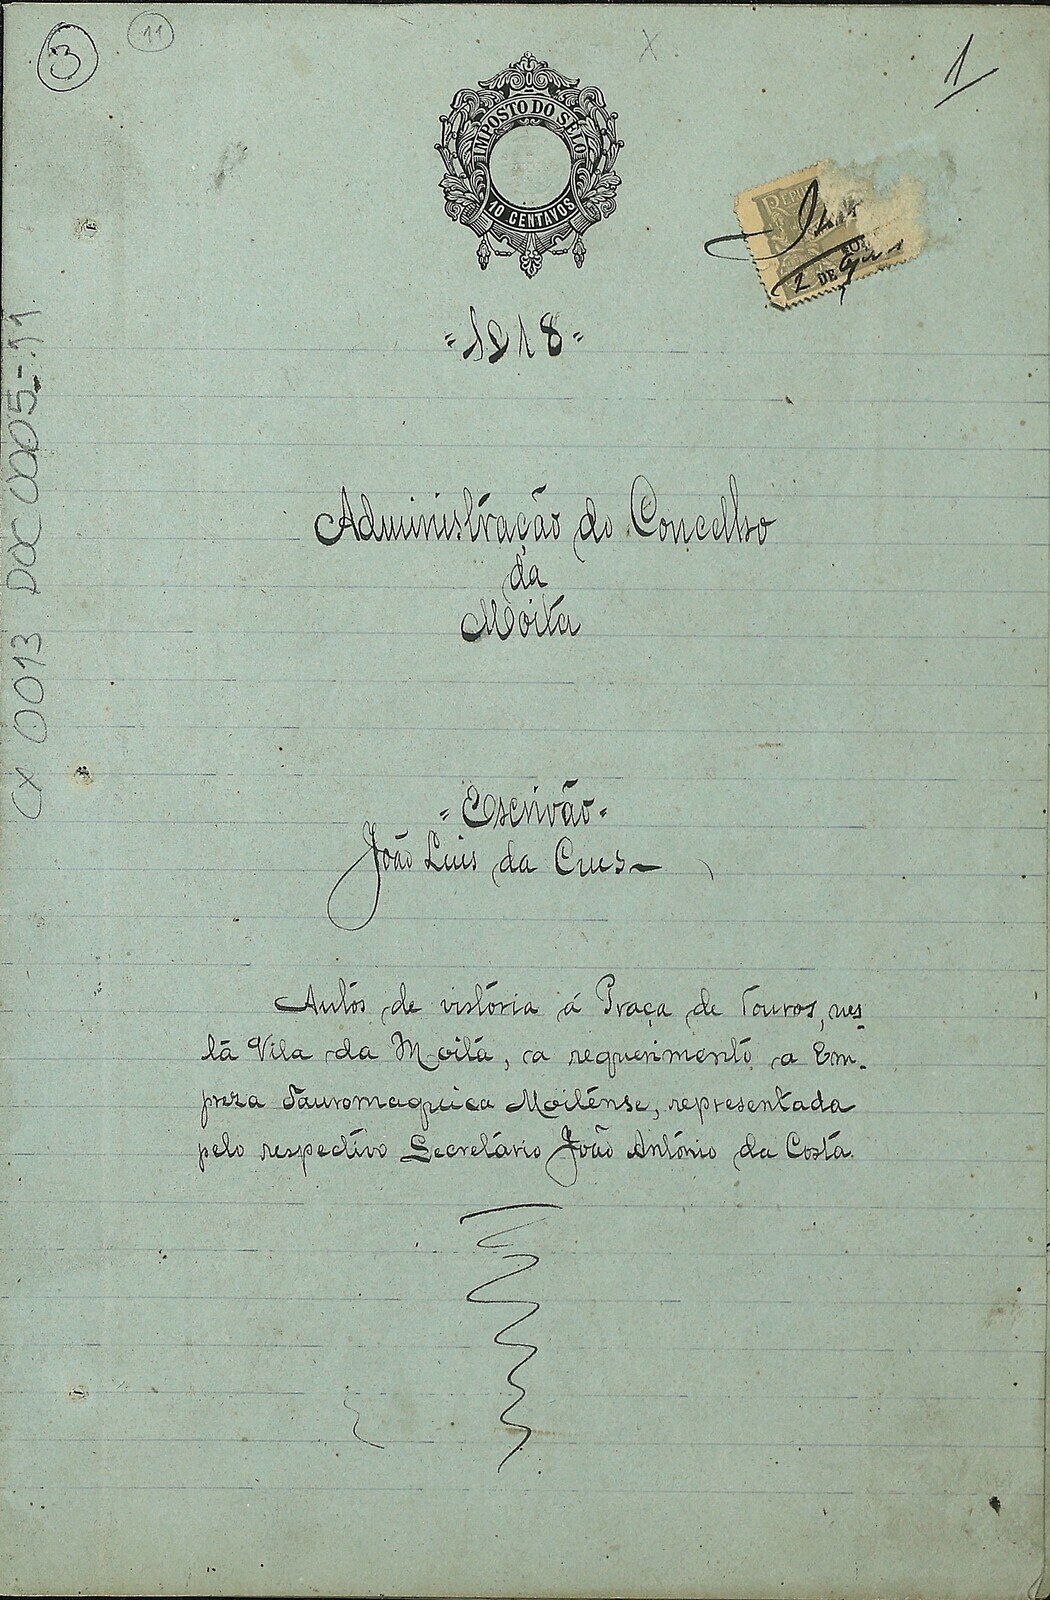 3
11
1
IMPOSTO DO SELO
10 CENTAVOS
2 DE
=1918=
Administração do Concelho
da
Moita
=Escrivão=
João Luis da Crus
Autós de vistória á Praça de Touros, nes-
ta Vila da Moita, a requerimento a Em-
preza Tauromaquica Moitênse, representada
pelo respectivo Secretário João António da Costa.
CX 0013 DOC 0005-11